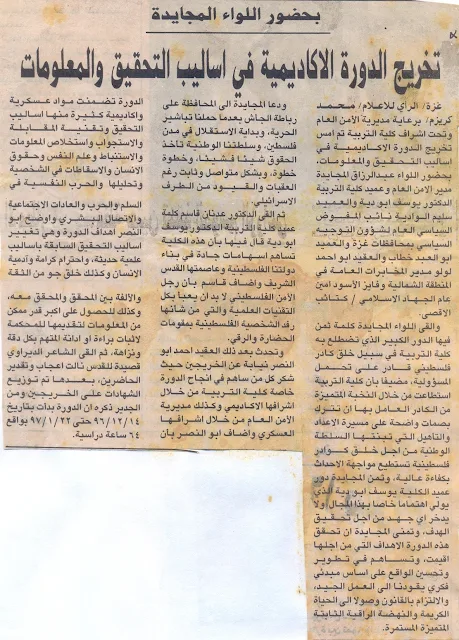 بحضور اللواء المجايدة
تخريج الدورة الاكاديمية في اساليب التحقيق والمعلومات
غزة/ الرأي للاعلام/ محمد
كريزم/ برعاية مديرية الأمن العام
وتحت اشراف كلية التربية تم امس
تخريج الدورة الاكاديمية في
اساليب التحقيق والمعلومات،
بحضور اللواء عبدالرزاق المجايدة
مدير الامن العام وعميد كلية التربية
الدكتور يوسف ابو دية والعميد
سليم الوادية نائب المفوض
السياسي العام لشؤون التوجيه
السياسي بمحافظات غزة والعميد
ابو العبد خطاب والعقيد ابو احمد
لولو مدير المخابرات العامة في
المنطقة الشمالية وفايز الأسود امين
عام الجهاد الاسلامي / كتائب
الاقصى.
والقى اللواء المجايدة كلمة ثمن
فيها الدور الكبير الذي تضطلع به
كلية التربية في سبيل خلق كادر
فلسطيني قادر على تحمل
المسؤولية، مضيفا بأن كلية التربية
استطاعت من خلال النخبة المتميزة
من الكادر العامل بها ان تترك
بصمات واضحة على مسيرة الاعداد
والتاهيل التي تبنتها السلطة
الوطنية من اجل خلق كوادر
فلسطينية تستطيع مواجهة الاحداث
بكفاءة عالية، وثمن المجايدة دور
عميد الكلية يوسف ابو دية الذي
يولي اهتماما خاصا بهذا المجال ولا
يدخر اي جهد من اجل تحقيق
الهدف، وتمنى المجايدة ان تحقق
هذه الدورة الاهداف التي من اجلها
اقيمت، وتساهم في تطوير
وتحسين الواقع على اساس مبدئي
فكري يقودنا الى العمل الجيد،
والالتزام بالقانون وصولا الى الحياة
الكريمة والنهضة الراقية الثابتة
المتميزة المستمرة.
ودعا المجايدة الى المحافظة على
رباطة الجأش بعدما حملنا تباشير
الحرية، وبداية الاستقلال في مدن
فلسطين، وسلطتنا الوطنية تأخذ
الحقوق شيئا فشيئا، وخطوة
خطوة، وبشكل متواصل وثابت رغم
العقبات والقيود من الطرف
الاسرائيلي.
ثم القى الدكتور عدنان قاسم كلمة
عميد كلية التربية الدكتور يوسف
ابو دية قال فيها بأن هذه الكلية
تساهم اسهامات جادة في بناء
دولتنا الفلسطينية وعاصمتها القدس
الشريف واضاف قاسم بأن رجل
الأمن الفلسطيني لا بد ان يعبأ بكل
التقنيات العلمية والتي من شأنها
رفد الشخصية الفلسطينية بمقومات
الحضارة والرقي.
وتحدث بعد ذلك العقيد احمد ابو
النصر نيابة عن الخريجين حيث
شكر كل من ساهم في انجاح الدورة
خاصة كلية التربية من خلال
اشرافها الاكاديمي وكذلك مديرية
الأمن العام من خلال اشرافها
العسكري واضاف ابو النصر بان
الدورة تضمنت مواد عسكرية
واكاديمية كثيرة منها اساليب
التحقيق وتقنية المقابلة
والاستجواب واستخلاص المعلومات
والاستنباط وعلم النفس وحقوق
الانسان والاسقاطات في الشخصية
وتحليلها والحرب النفسية في
السلم والحرب والعادات الاجتماعية
والاتصال البشري واوضح ابو
النصر اهداف الدورة وهي تغيير
اساليب التحقيق السابقة باساليب
علمية حديثة، واحترام كرامة وآدمية
الانسان وكذلك خلق جو من الثقة
والألفة بين المحقق والمحقق معه،
وكذلك للحصول على اكبر قدر ممكن
من المعلومات لتقديمها للمحكمة
لاثبات براءة او ادانة المتهم بكل دقة
ونزاهة، ثم القى الشاعر الديراوي
قصيدة للقدس نالت اعجاب وتقدير
الحاضرين، بعدها تم توزيع
الشهادات على الخريجين ومن
الجدير ذكره ان الدورة بدأت بتاريخ
٩٦/١٢/١٤ حتى ٩٧/١/٢٢ بواقع
٦٤ ساعة دراسية.